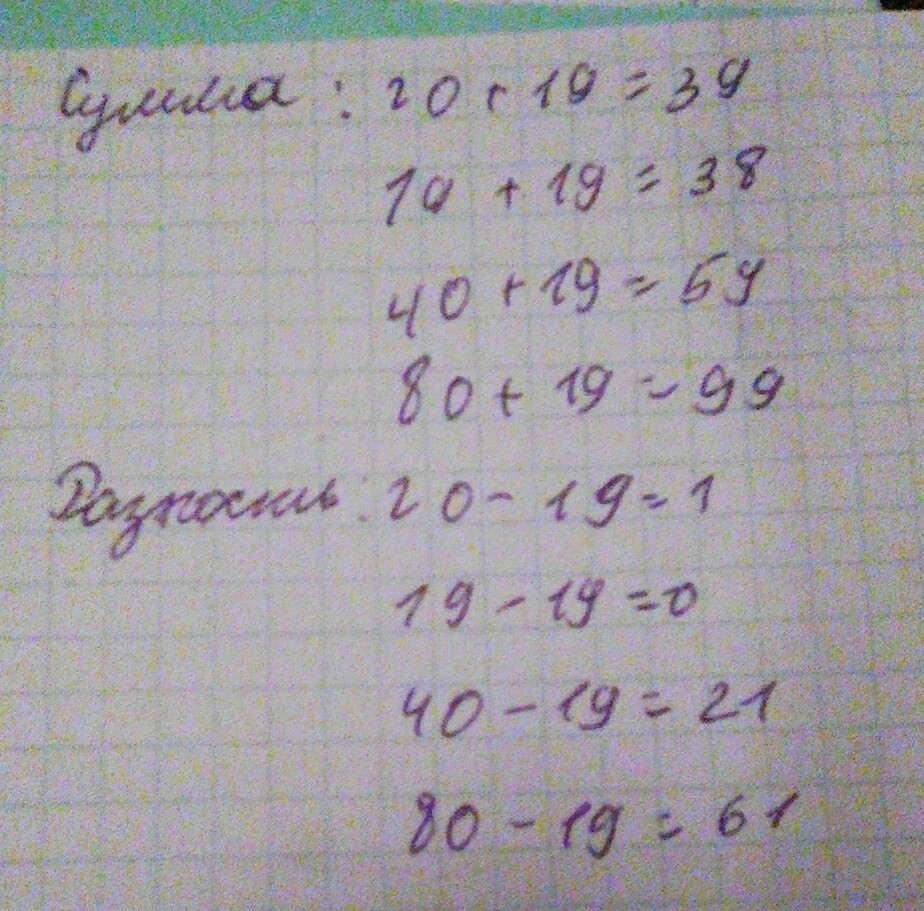 Сумма: 20 + 19 = 39
19 + 19 = 38
40 + 19 = 59
80 + 19 = 99
Разность: 20 - 19 = 1
19 - 19 = 0
40 - 19 = 21
80 - 19 = 61